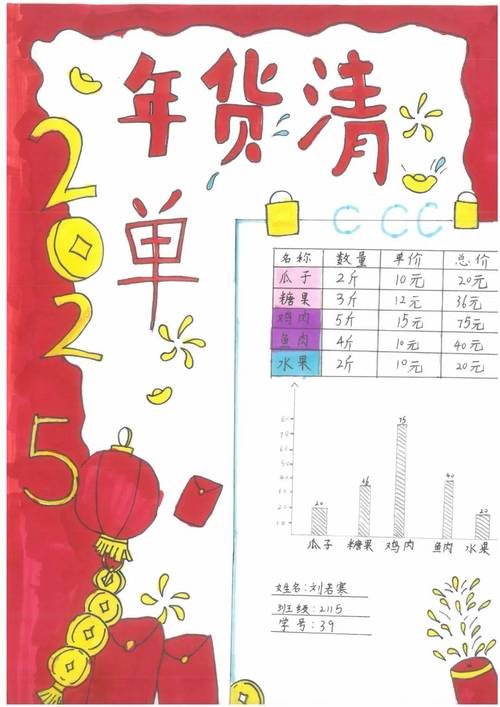 年货清
单
2025
名称 数量 单价 总价
瓜子 2斤 10元 20元
糖果 3斤 12元 36元
鸡肉 5斤 15元 75元
鱼肉 4斤 10元 40元
水果 2斤 10元 20元
80
70
60
50
40
30
20
10
20 36 75 40 20
瓜子 糖果 鸡肉 鱼肉 水果
姓名:刘若寒
班级:2115
学号:39